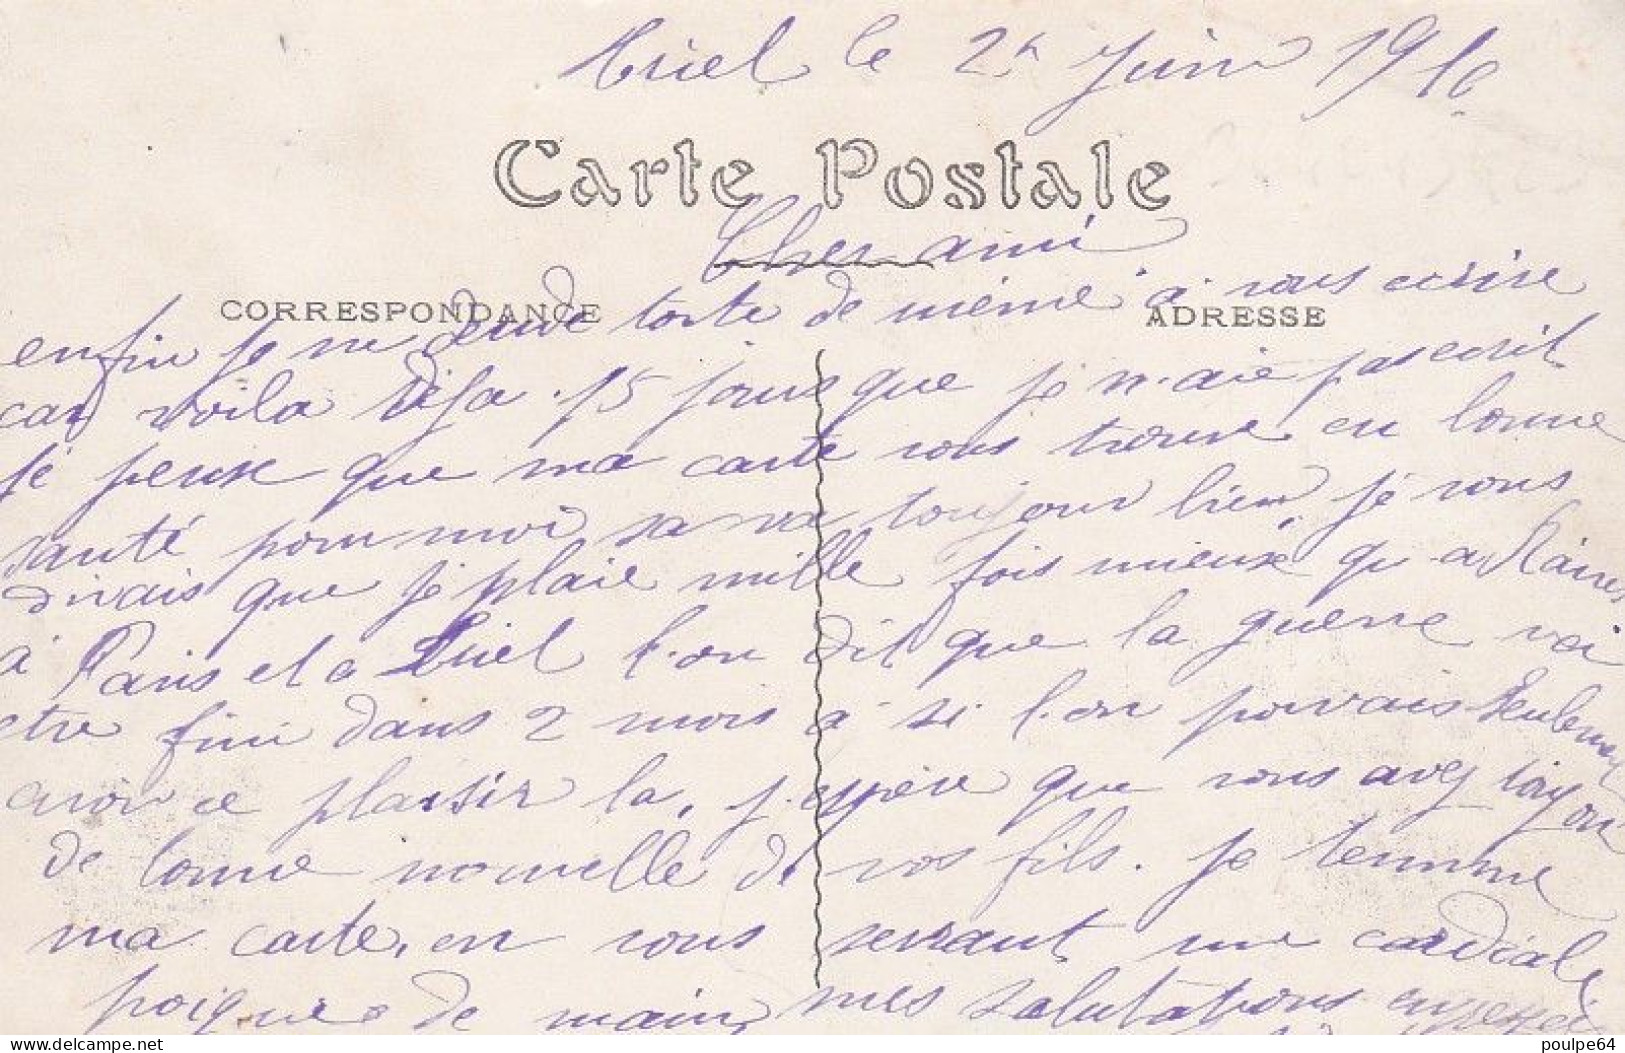 Triel le 2 Juin 1916
Carte Postale
Cher ami
CORRESPONDANCE
ADRESSE
enfin je me deside torte de même à vous ecrire
car voila deja 15 jours que je n'aie pas ecrit
je pense que ma carte vous trouve en bonne
santé pour moi sa va toujour bien. je vous
dirais que je plaie mille fois mieux qu a
à Paris et a Triel l'on dit que la guerre vai
etre fini dans 2 mois a si l'on pouvais seulement
avoir ce plaisir la, j'espère que vous avez toujour
de bonne nouvelle de vos fils. je termine
ma carte, en vous serrant une cordiale
poignée de main, mes salutations
www.delcampe.net
poulpe64